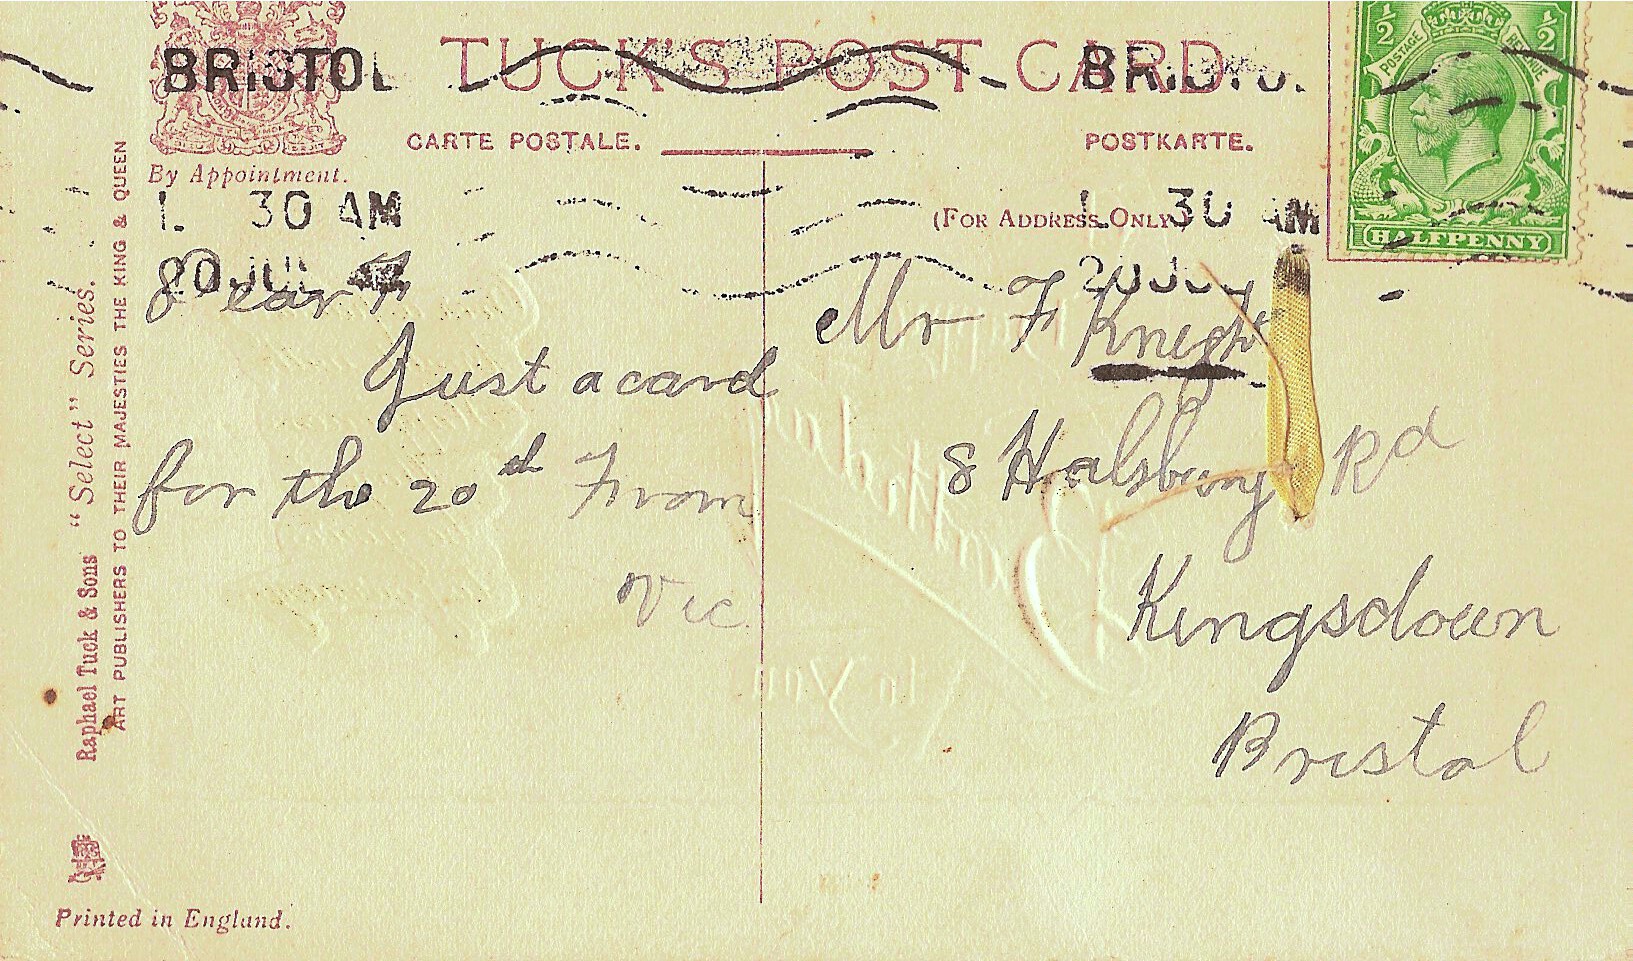 BRISTOL
1. 30 AM
20 JUL
TUCK'S POST CARD
CARTE POSTALE.
POSTKARTE.
By Appointment.
(FOR ADDRESS ONLY.)
30 AM
½ ½
POSTAGE REVENUE
HALFPENNY
Dear F
Just a card
for the 20th From
Vic
Mr F Knight
8 Halsbury Rd
Kingsdown
Bristol
Raphael Tuck & Sons "Select" Series.
ART PUBLISHERS TO THEIR MAJESTIES THE KING & QUEEN
Printed in England.